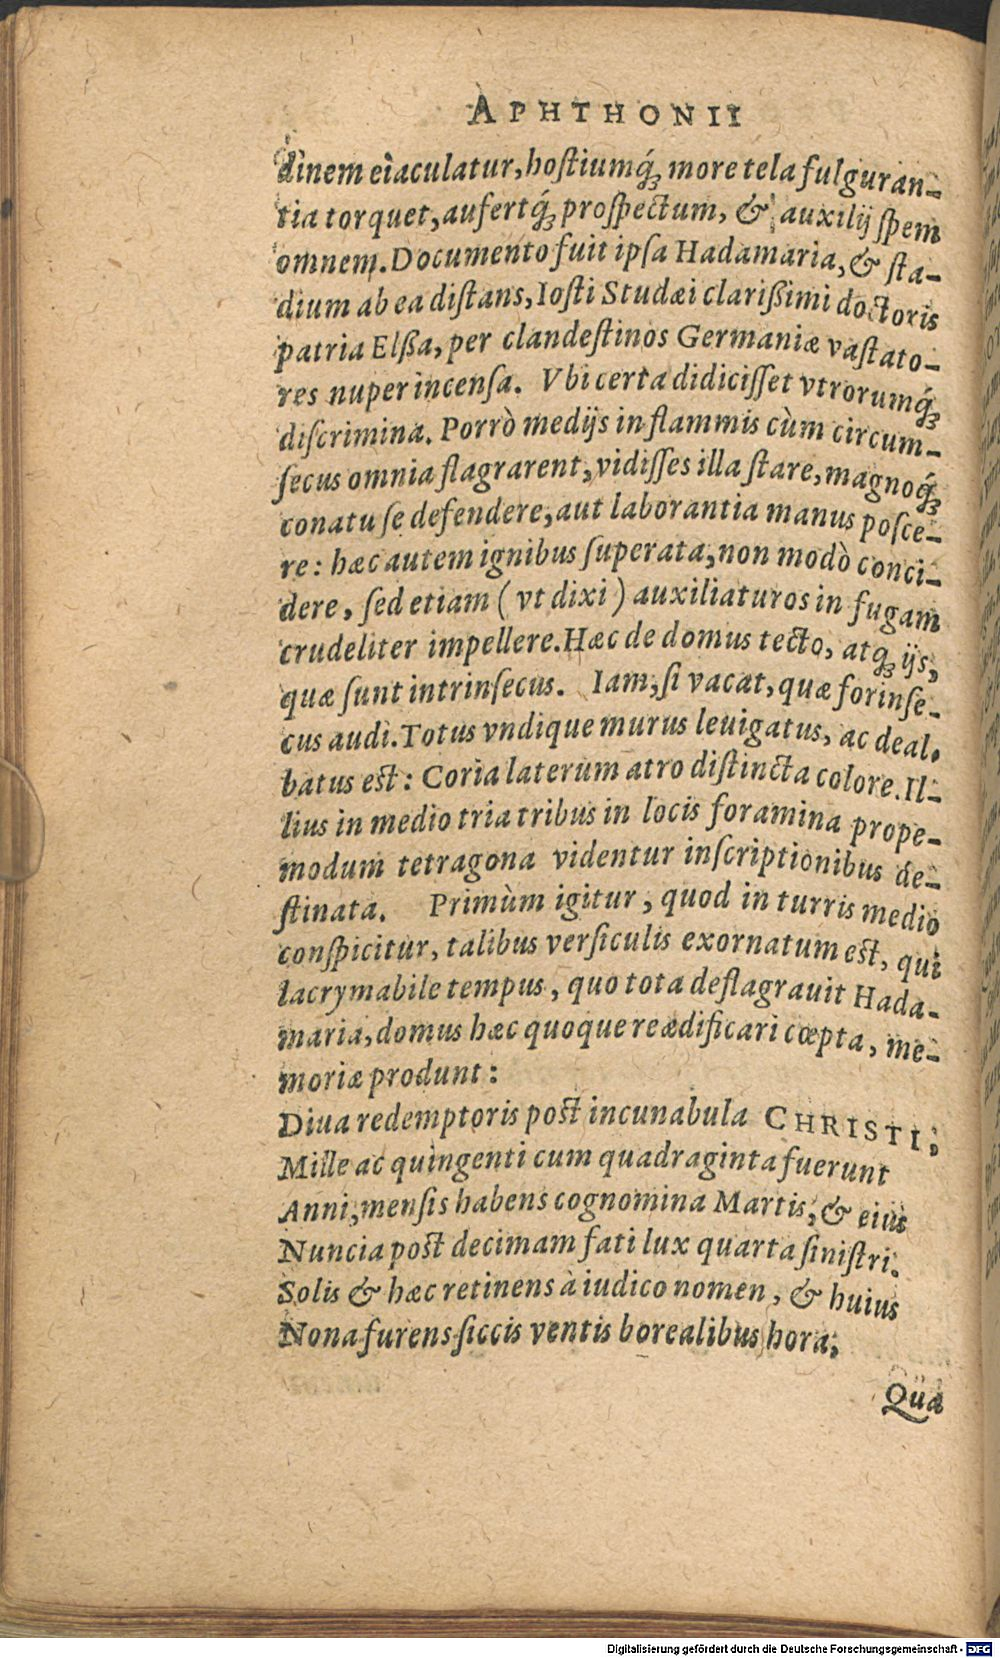 APHTHONII
dinem eiaculatur, hostiumq́; more tela fulguran-
tia torquet, aufertq́; prospectum, & auxilij spem
omnem. Documento fuit ipsa Hadamaria, & sta-
dium ab ea distans, Iosti Studæi clarißimi doctoris
patria Elßa, per clandestinos Germaniæ vastato-
res nuper incensa. Vbi certa didicisset vtrorumq́;
discrimina. Porrò medijs in flammis cùm circum-
secus omnia flagrarent, vidisses illa stare, magnoq́;
conatu se defendere, aut laborantia manus posce-
re: hæc autem ignibus superata, non modò conci-
dere, sed etiam (vt dixi) auxiliaturos in fugam
crudeliter impellere. Hæc de domus tecto, atq; ijs,
quæ sunt intrinsecus. Iam, si vacat, quæ forinse-
cus audi. Totus vndique murus leuigatus, ac deal-
batus est: Coria laterum atro distincta colore. Il-
lius in medio tria tribus in locis foramina prope-
modum tetragona videntur inscriptionibus de-
stinata. Primùm igitur, quod in turris medio
conspicitur, talibus versiculis exornatum est, qui
lacrymabile tempus, quo tota deflagrauit Hada-
maria, domus hæc quoque reædificari cœpta, me-
moriæ produnt:
Diua redemptoris post incunabula CHRISTI,
Mille ac quingenti cum quadraginta fuerunt
Anni, mensis habens cognomina Martis, & eius
Nuncia post decimam fati lux quarta sinistri.
Solis & hæc retinens à iudico nomen, & huius
Nona furens siccis ventis borealibus hora,
Qua
Digitalisierung gefördert durch die Deutsche Forschungsgemeinschaft - DFG